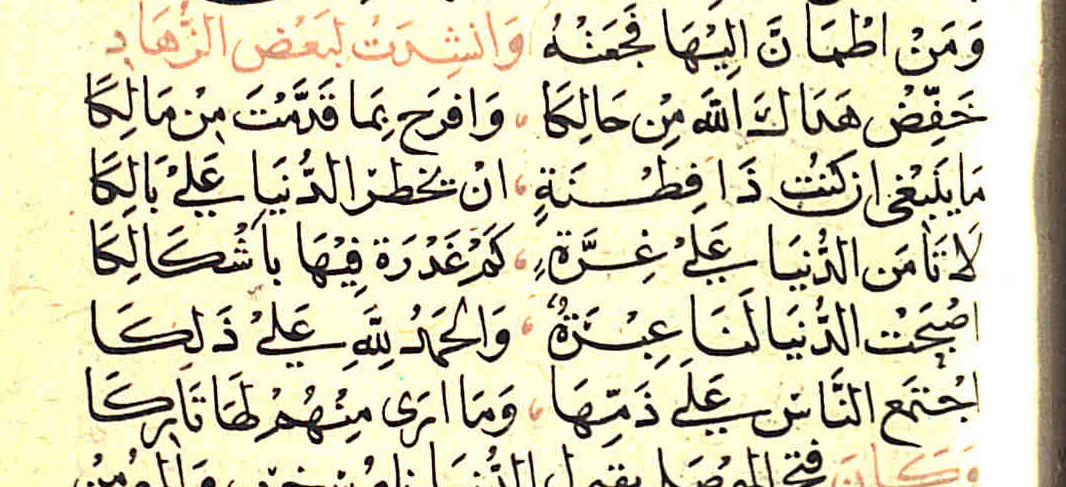 وَمَنْ اطْمَاَنَّ اِلَيْهَا فَجَعَتْهُ وَانشِدتُ لبَعْض الزُّهَّادِ
خَفِّضْ هَدَاكَ اللهَ مِنْ حَالِكَا ، وَافرَح بِمَا قَدَّمْتَ مِنْ مَالِكَا
مَا يَنبَغى ان كنتَ ذَا فِطْنَةٍ ، انْ يَخطر الدُّنيَا عَلىْ بَالِكَا
لَا تَأمَن الدُّنيَا عَلىْ غِرَّةٍ ، كَمْ غَدْرَة فِيْهَا بِاَشْكَالِكَا
اصْبَحَتْ الدُّنيَا لَنَا عِبْرَةً ، وَالحَمْدُ لِلَّهِ عَلىْ ذَلِكَا
اجْتَمَع النَّاسُ عَلىَ ذَمِّهَا ، وَمَا ارَى مِنْهُمْ لهَا تَارِكَا
وَكَانَ فتح الموْصلى يقول الدُّنيَا